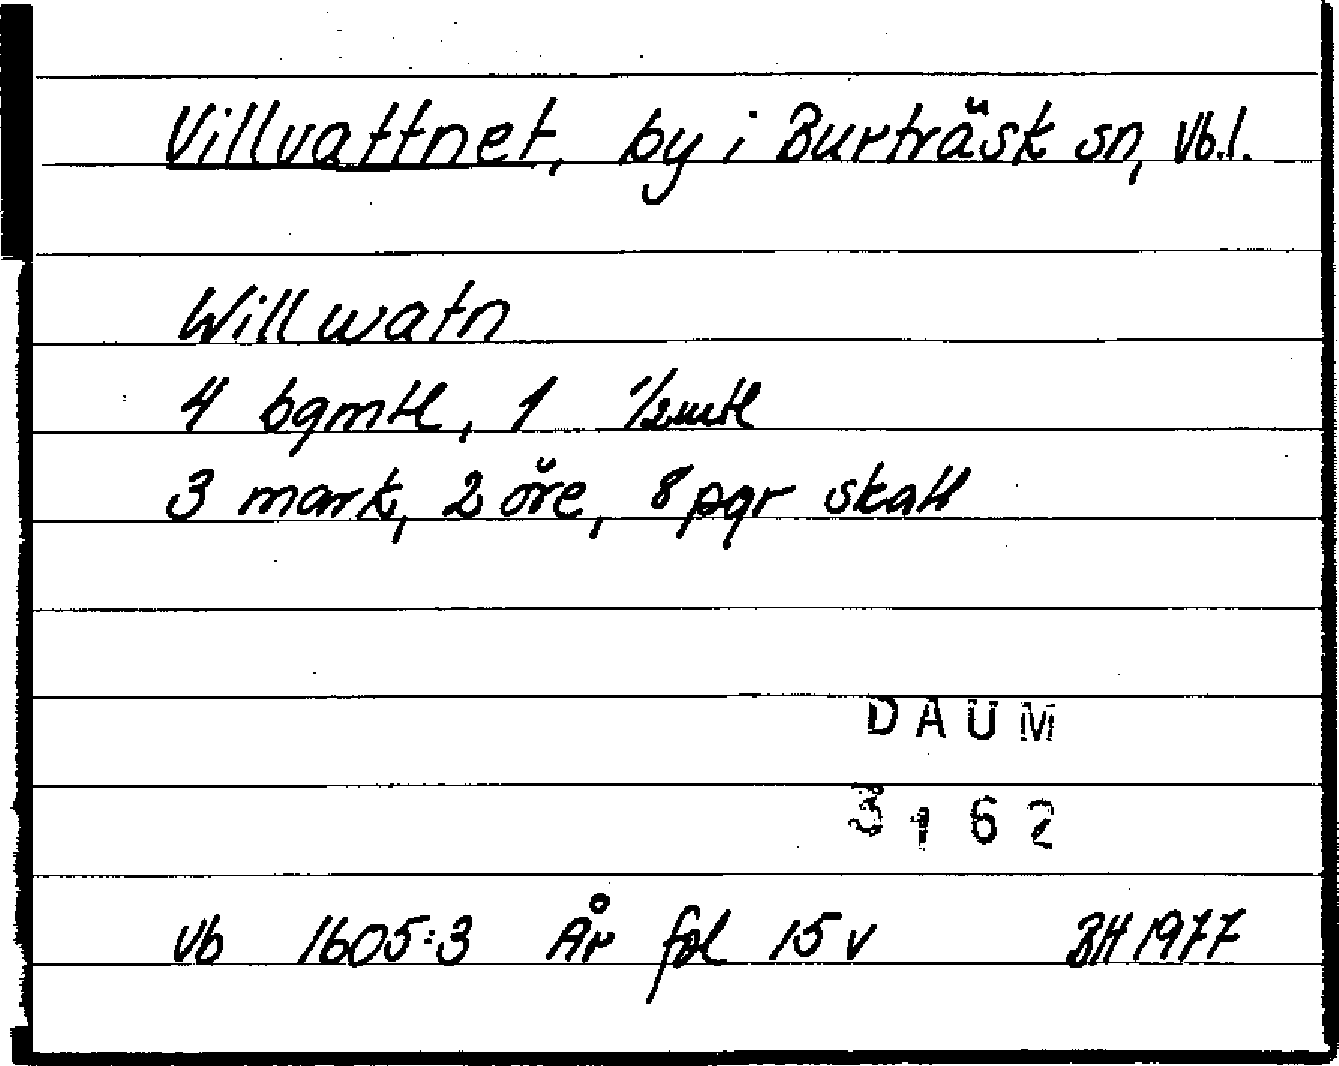 Villvattnet, by i Burträsk sn, Vb.l.
Willwatn
4 bgmtl, 1 1/2mtl
3 mark, 2 öre, 8 pgr skatt
DAUM
3162
Vb 1605:3 År fol 15 v BH 1977